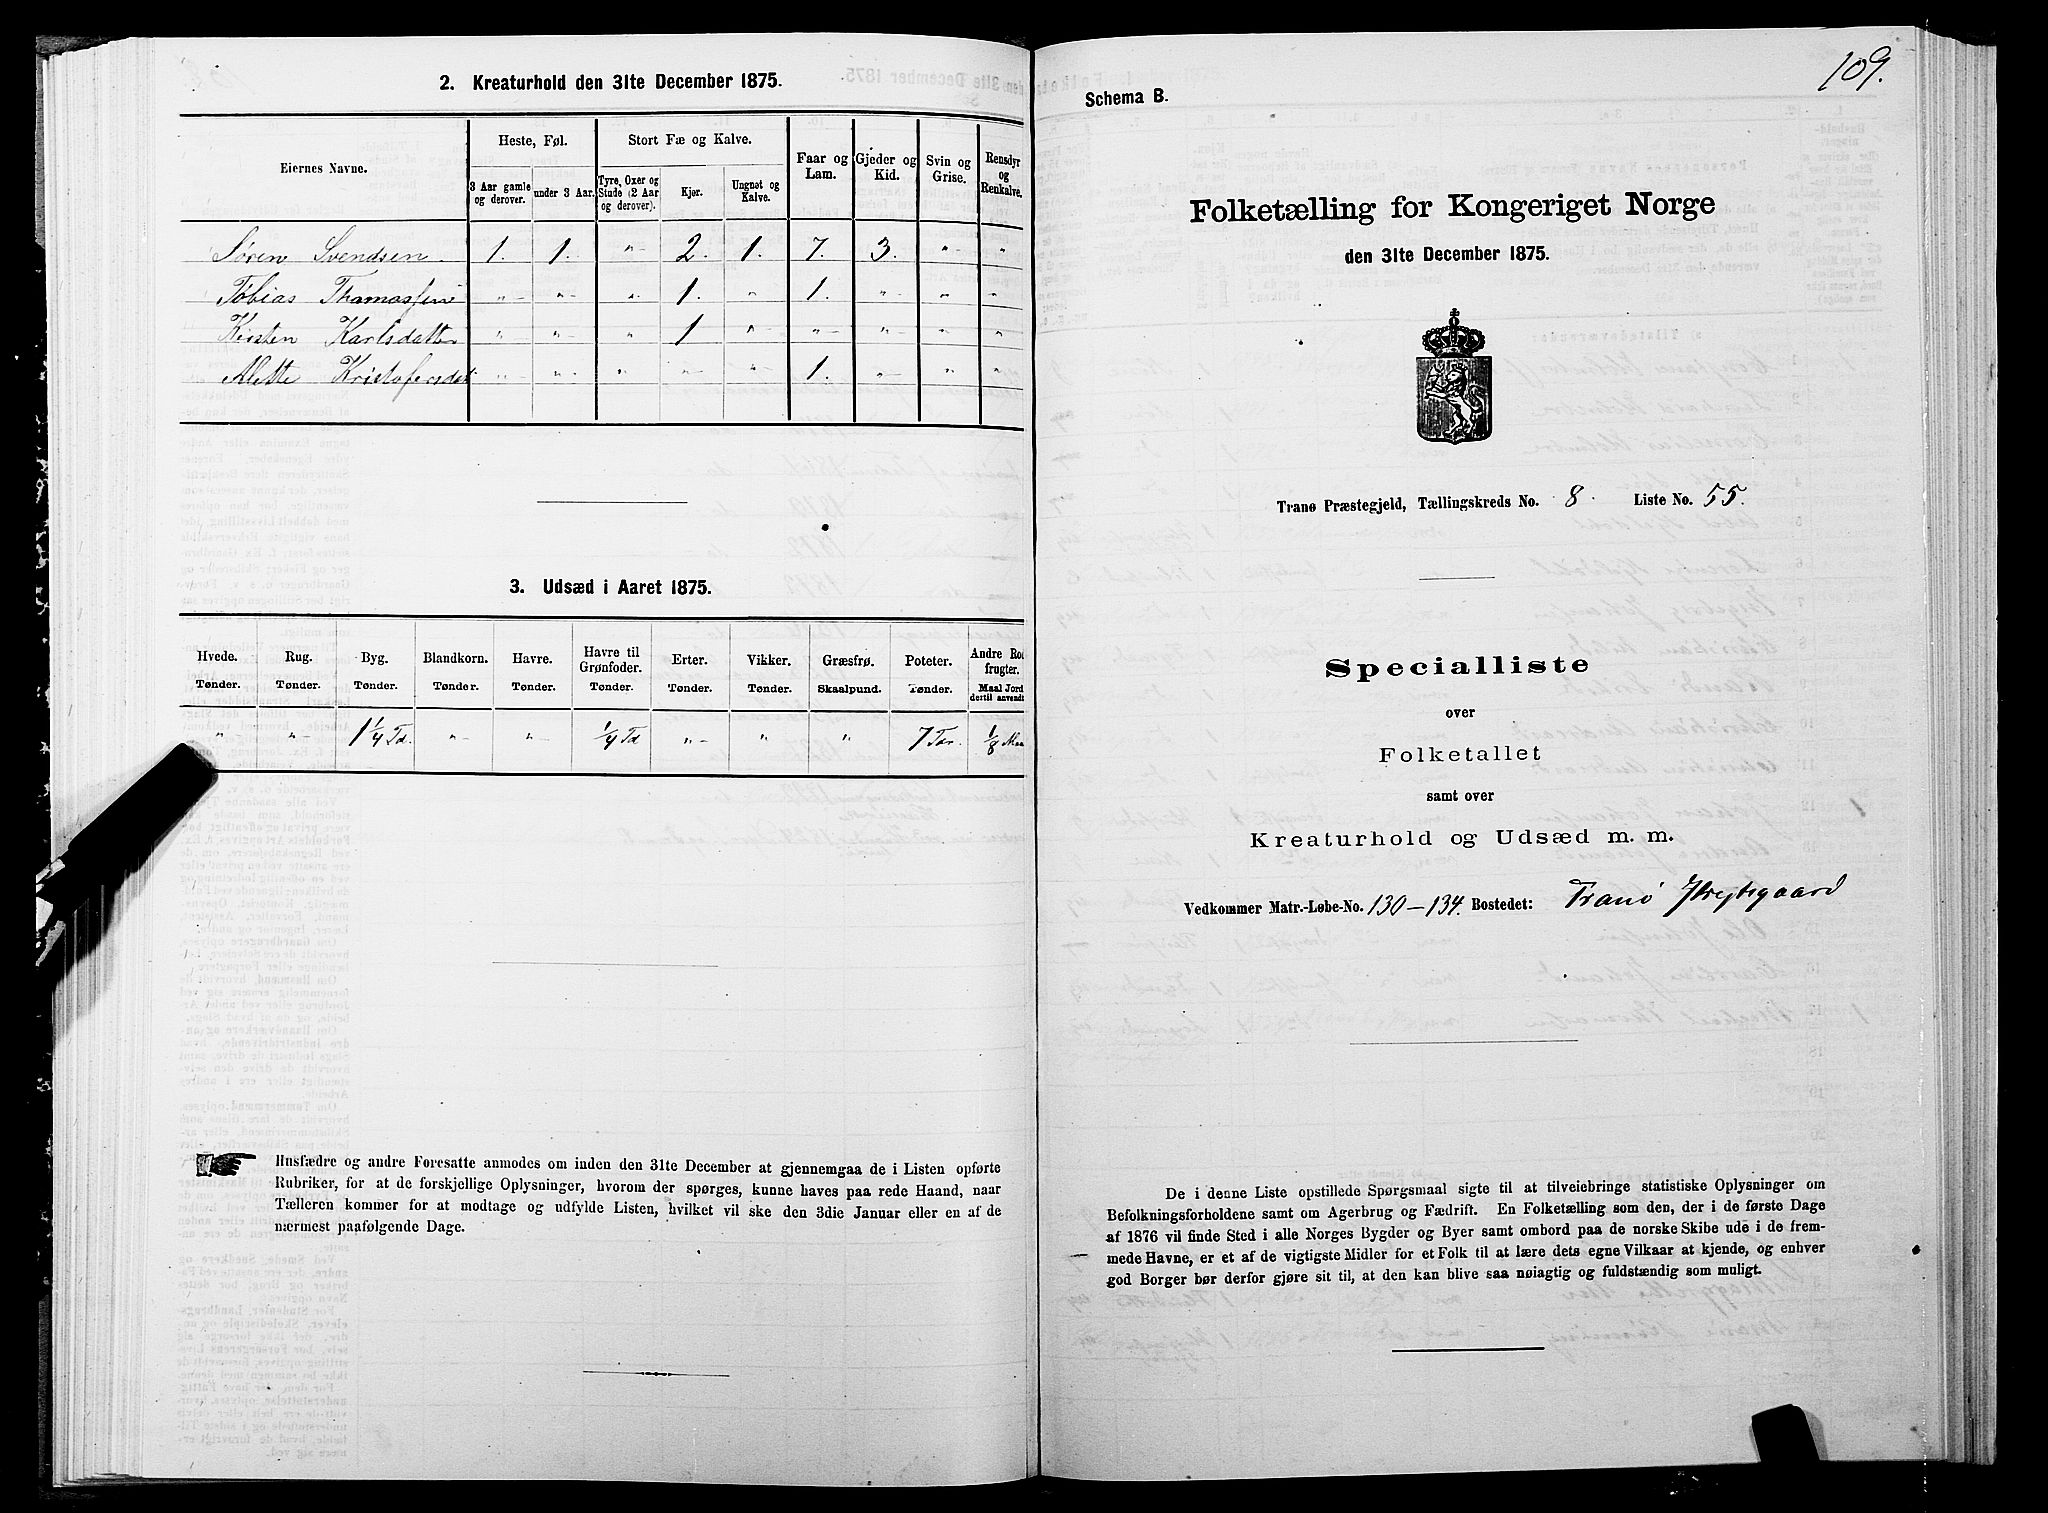 2. Kreaturhold den 31te December 1875.
Eiernes Navne. Heste, Føl. Stort Fæ og Kalve. Faar og Lam. Gjeder og Kid. Svin og Grise. Rensdyr og Renkalve.
3 Aar gamle og derover. under 3 Aar. Tyre, Oxer og Stude (2 Aar og derover). Kjør. Ungnøt og Kalve.
Søren Svendsen 1. 1. " 2. 1. 7. 3. " "
Tobias Thomassen " " " 1. " 1. " " "
Kirsten Karlsdatter " " " 1 " " " " "
Alette Kristofersdat " " " " " 1. " " "
3. Udsæd i Aaret 1875.
Hvede. Rug. Byg. Blandkorn. Havre. Havre til Grønfoder. Erter. Vikker. Græsfrø. Poteter. Andre Rodfrugter.
Tønder. Tønder. Tønder. Tønder. Tønder. Tønder. Tønder. Tønder. Skaalpund. Tønder. Maal Jord dertil anvendt
" " 1 1/4 Td. " " 1/4 Td " " " 7 Tdr. 1/8 Maa
Husfædre og andre Foresatte anmodes om inden den 31te December at gjennemgaa de i Listen opførte
Rubriker, for at de forskjellige Oplysninger, hvorom der spørges, kunne haves paa rede Haand, naar
Tælleren kommer for at modtage og udfylde Listen, hvilket vil ske den 3die Januar eller en af de
nærmest paafølgende Dage.
109.
Schema B.
Folketælling for Kongeriget Norge
den 31te December 1875.
Tranø Præstegjeld, Tællingskreds No. 8. Liste No. 55.
Specialliste
over
Folketallet
samt over
Kreaturhold og Udsæd m. m.
Vedkommer Matr.-Løbe-No. 130-134. Bostedet: Tranø
De i denne Liste opstillede Spørgsmaal sigte til at tilveiebringe statistiske Oplysninger om
Befolkningsforholdene samt om Agerbrug og Fædrift. En Folketælling som den, der i de første Dage
af 1876 vil finde Sted i alle Norges Bygder og Byer samt ombord paa de norske Skibe ude i de frem-
mede Havne, er et af de vigtigste Midler for et Folk til at lære dets egne Vilkaar at kjende, og enhver
god Borger bør derfor gjøre sit til, at den kan blive saa nøiagtig og fuldstændig som muligt.